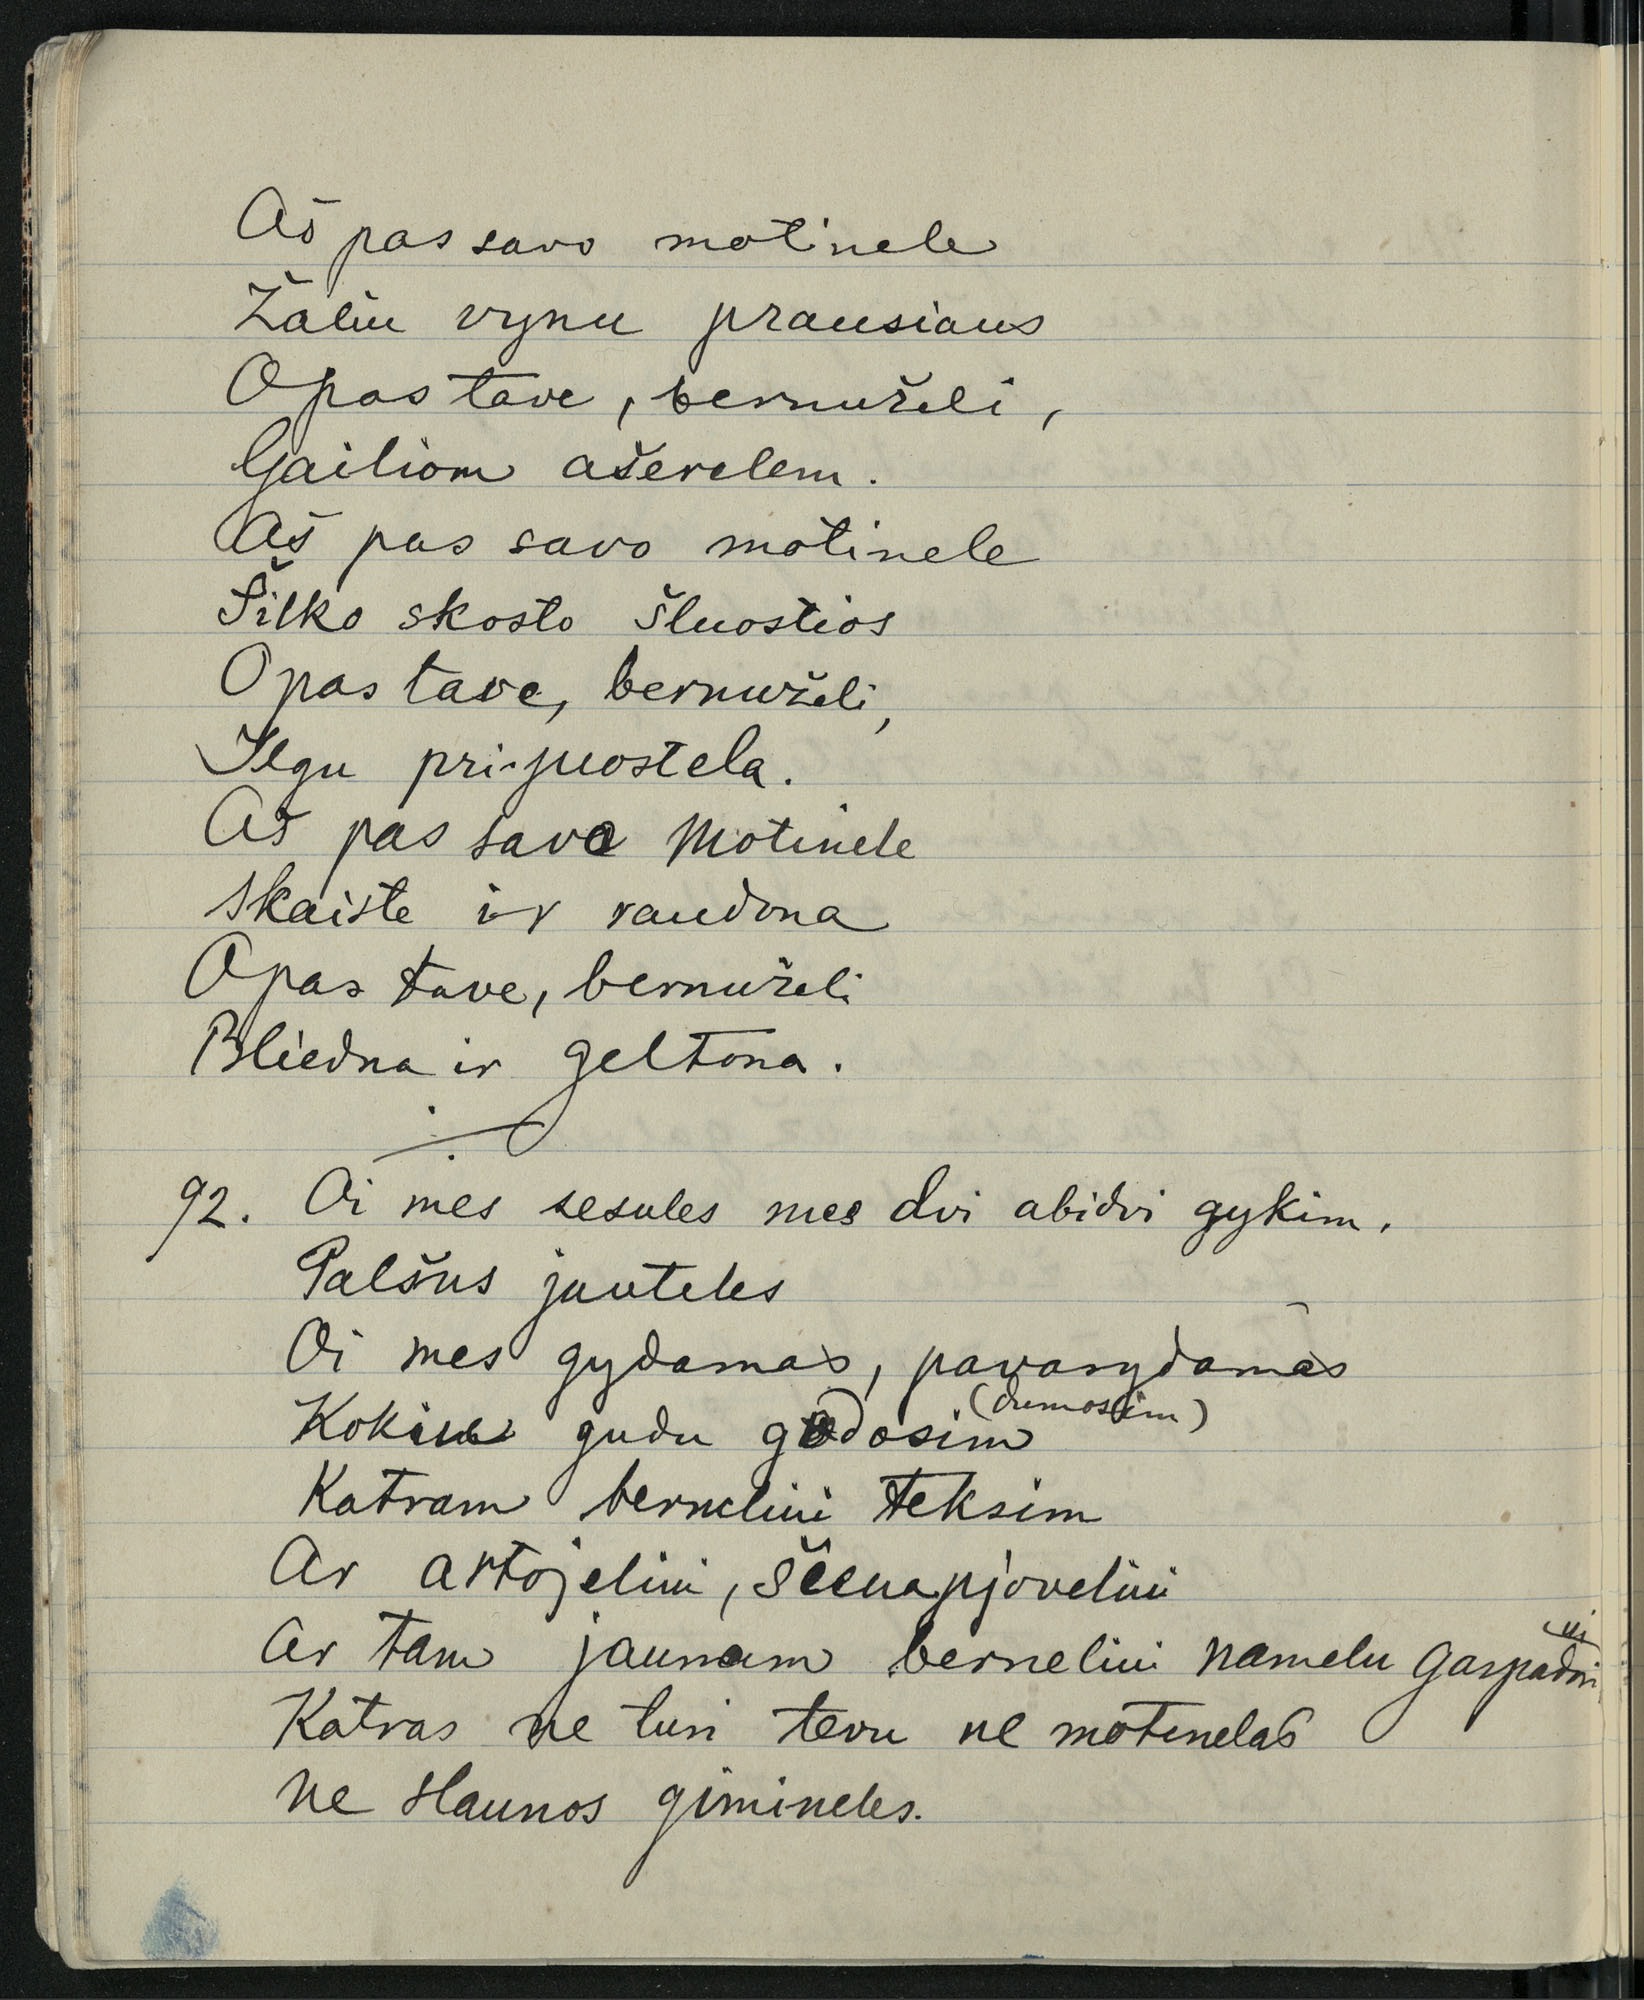 Aš pas savo motinele
Žaliu vynu prausiaus
O pas tave, bernuželi,
Gailiom ašerelem.
Aš pas savo motinele
Šilko skosto šluostios
O pas tave, bernuželi,
Ilgu prijuostela.
Aš pas savo Motinele
Skaiste ir raudona
O pas tave, bernuželi
Bliedna ir geltona.
92. Oi mes sesules mes dvi abidvi gykim.
Palšus jauteles
Oi mes gydamas, pavarydamas
(dumosim)
Kokiu gudu gudosim
Katram berneliui teksim
Ar artojeliui, šienapjoveliui
Ar tam jaunam berneliui namelu gaspadori
ui
Katras ne turi tevu ne motinelas
ne slaunos gimineles.